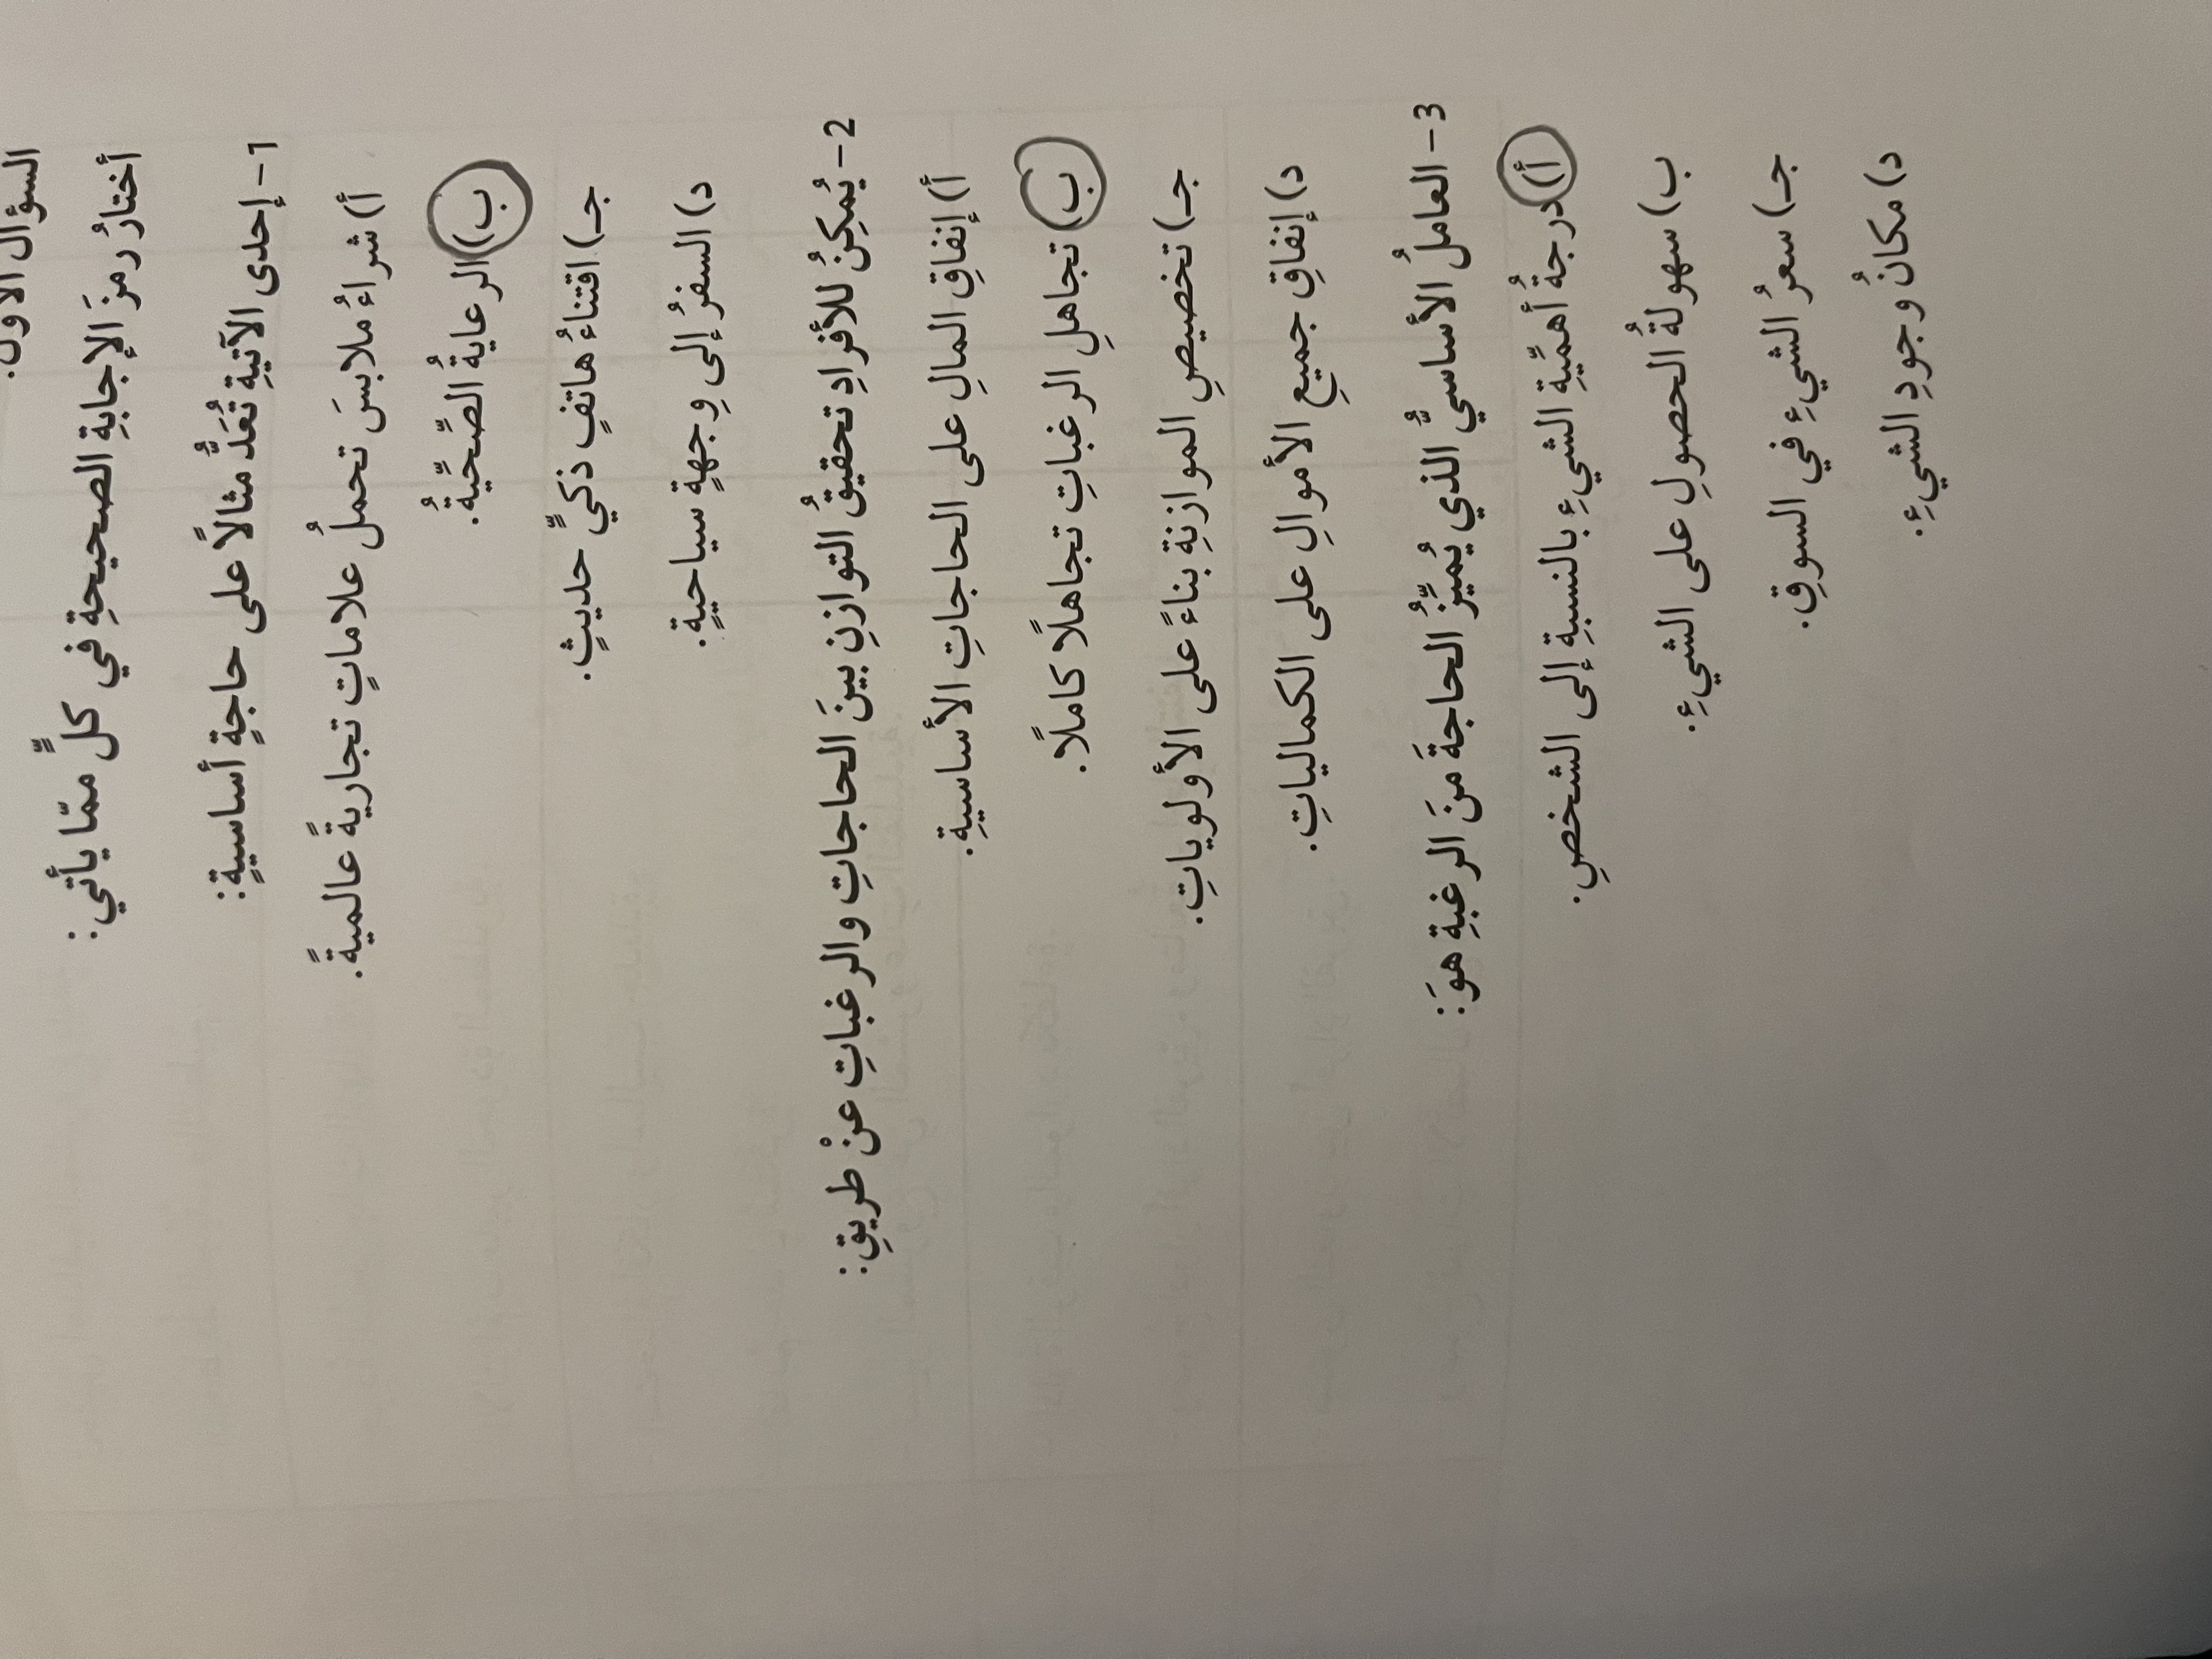 السؤال الأول:
أختارُ رمزَ الإجابةِ الصحيحةِ في كلٍّ ممّا يأتي:
1- إحدى الآتيةِ تُعَدُّ مثالًا على حاجةٍ أساسيةٍ:
أ) شراءُ ملابسَ تحملُ علاماتٍ تجاريةً عالميةً.
ب) الرعايةُ الصِّحِّيةُ.
جـ) اقتناءُ هاتفٍ ذكيٍّ حديثٍ.
د) السفرُ إلى وِجهةٍ سياحيةٍ.
2- يُمكِنُ للأفرادِ تحقيقُ التوازنِ بينَ الحاجاتِ والرغباتِ عنْ طريقِ:
أ) إنفاقِ المالِ على الحاجاتِ الأساسيةِ.
ب) تجاهلِ الرغباتِ تجاهلًا كاملًا.
جـ) تخصيصِ الموازنةِ بناءً على الأولوياتِ.
د) إنفاقِ جميعِ الأموالِ على الكمالياتِ.
3- العاملُ الأساسيُّ الذي يُميِّزُ الحاجةَ منَ الرغبةِ هوَ:
أ) درجةُ أهمّيةِ الشيءِ بالنسبةِ إلى الشخصِ.
ب) سهولةُ الحصولِ على الشيءِ.
جـ) سعرُ الشيءِ في السوقِ.
د) مكانُ وجودِ الشيءِ.